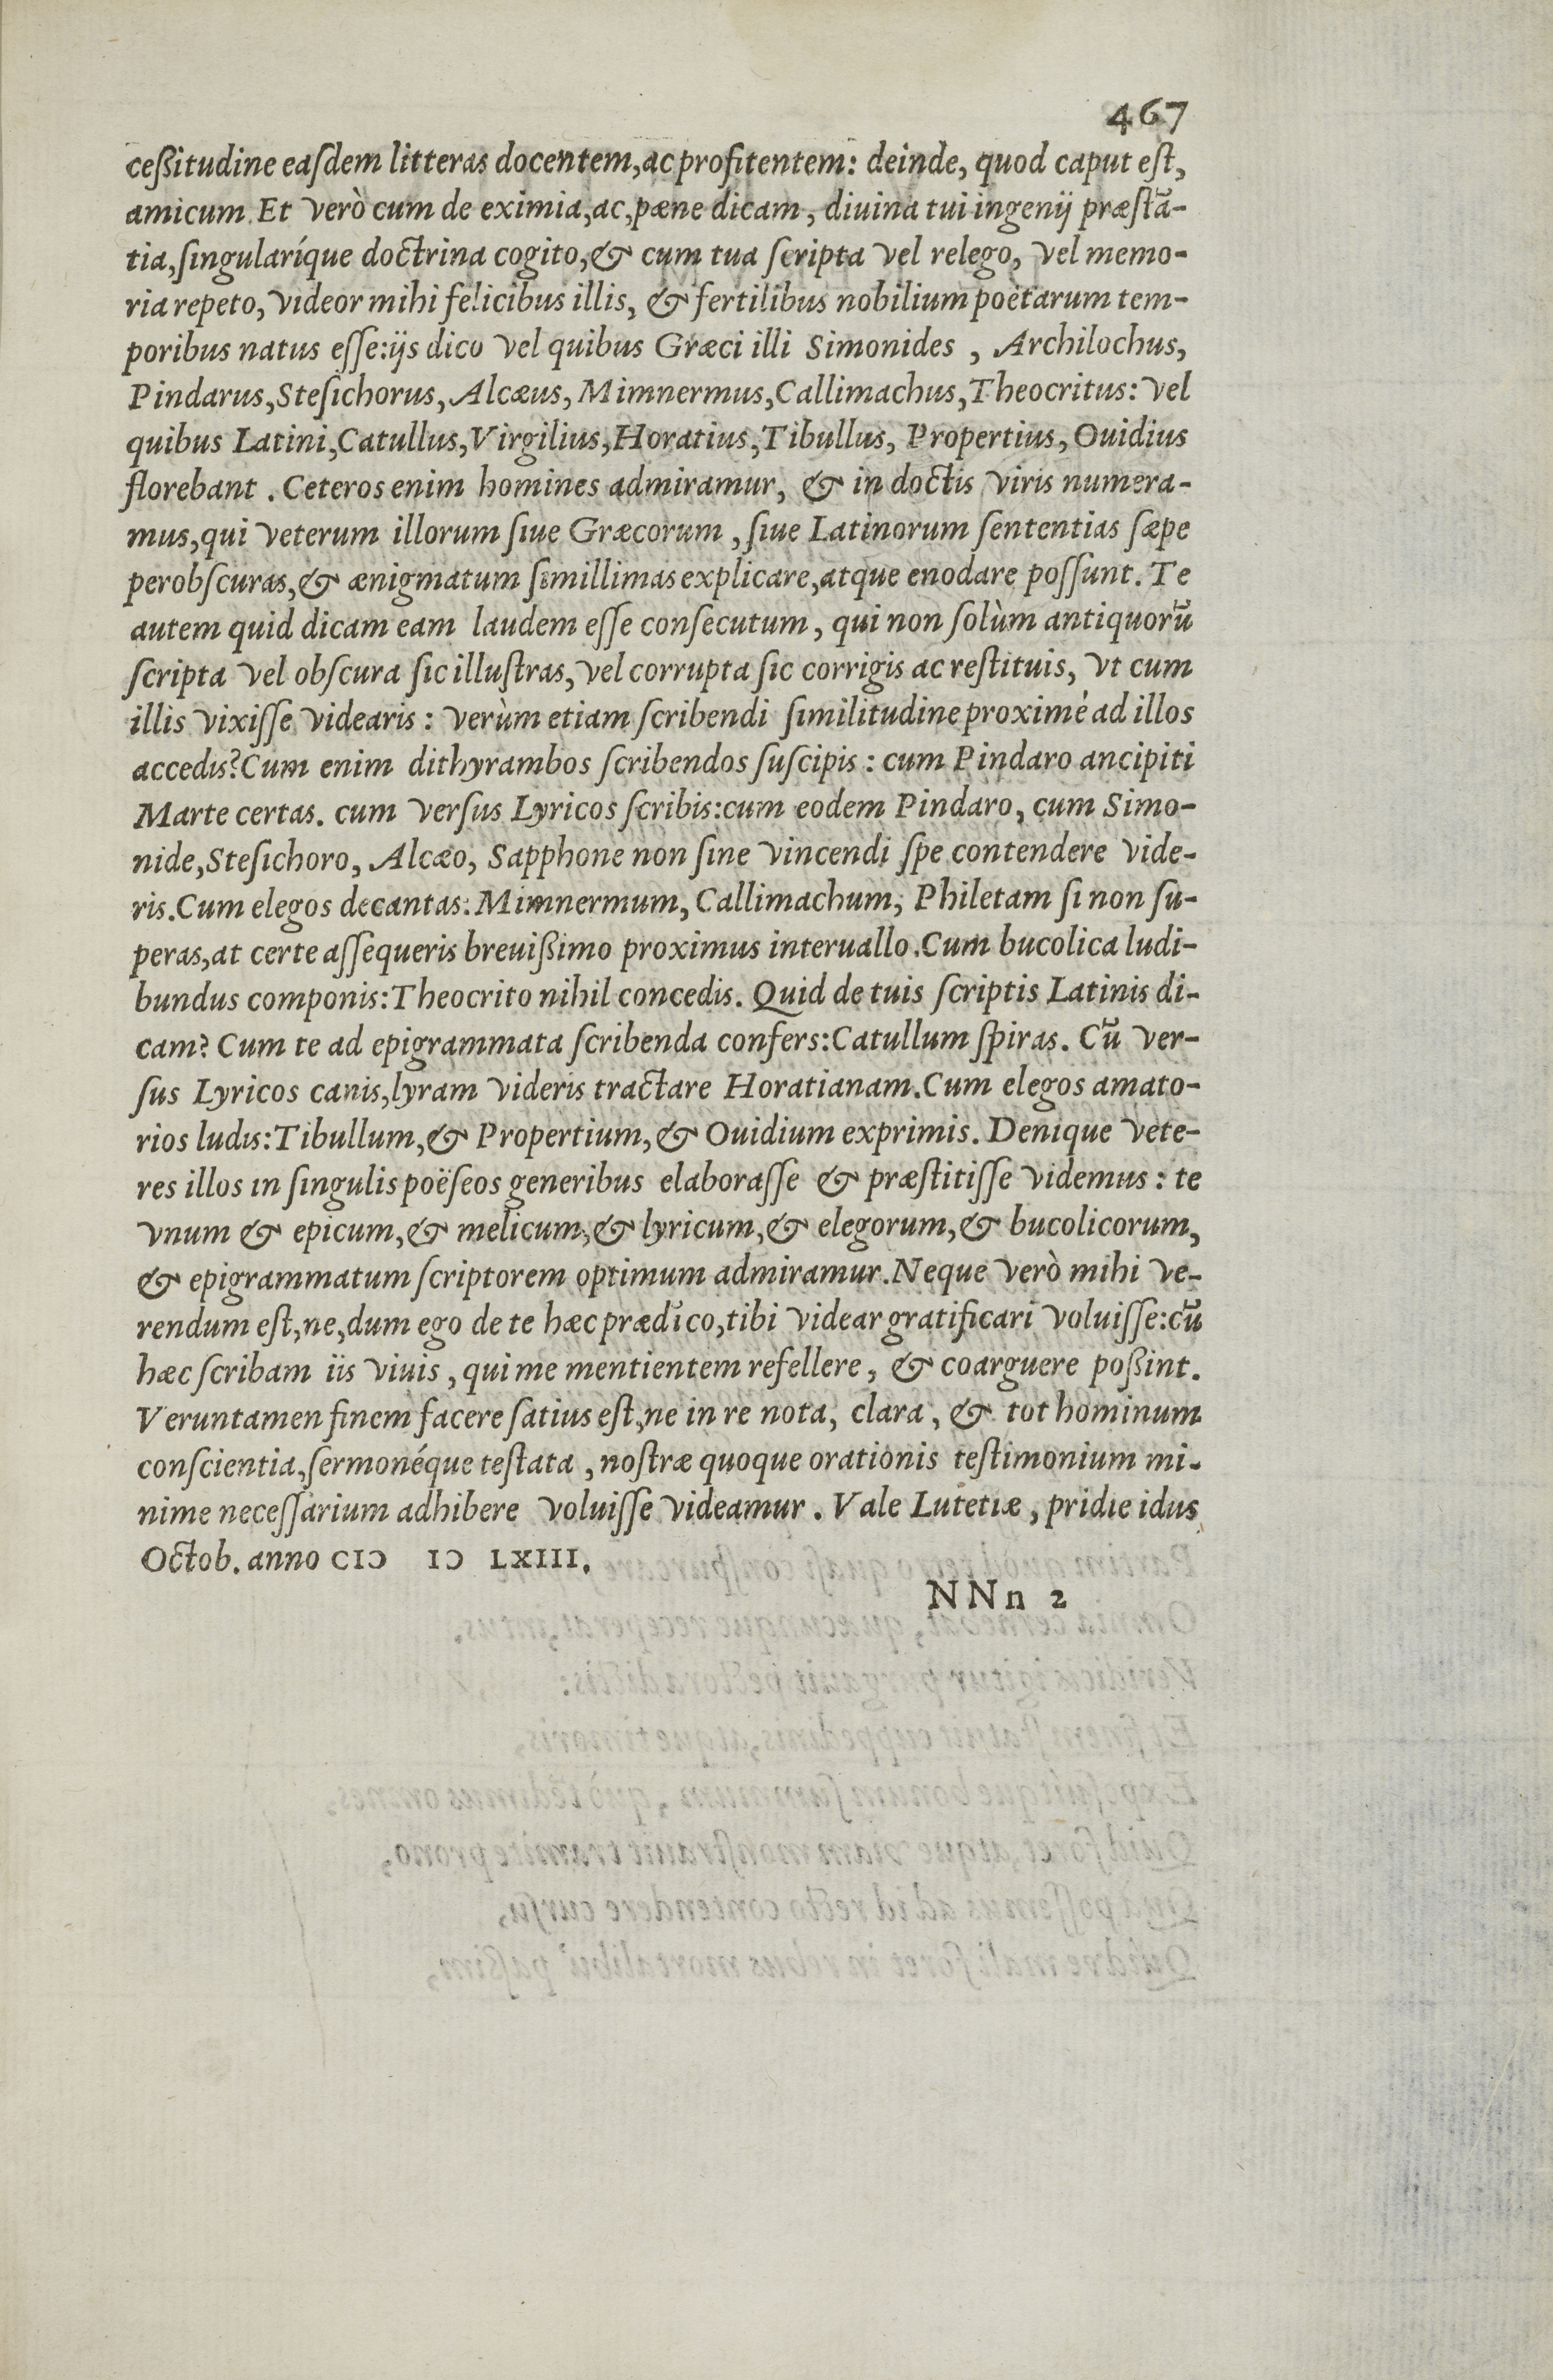 467
ceßitudine eaſdem litteras docentem, ac profitentem: deinde, quod caput eſt,
amicum. Et verò cum de eximia, ac, pæne dicam, diuina tui ingenij præſtã-
tia, ſingularíque doctrina cogito, & cum tua ſcripta vel relego, vel memo-
ria repeto, videor mihi felicibus illis, & fertilibus nobilium poëtarum tem-
poribus natus eſſe: ijs dico vel quibus Græci illi Simonides, Archilochus,
Pindarus, Steſichorus, Alcæus, Mimnermus, Callimachus, Theocritus: vel
quibus Latini, Catullus, Virgilius, Horatius, Tibullus, Propertius, Ouidius
florebant. Ceteros enim homines admiramur, & in doctis viris numera-
mus, qui veterum illorum ſiue Græcorum, ſiue Latinorum ſententias ſæpe
perobſcuras, & ænigmatum ſimillimas explicare, atque enodare poſſunt. Te
autem quid dicam eam laudem eſſe conſecutum, qui non ſolùm antiquorũ
ſcripta vel obſcura ſic illuſtras, vel corrupta ſic corrigis ac reſtituis, vt cum
illis vixiſſe videaris: verùm etiam ſcribendi ſimilitudine proximè ad illos
accedis? Cum enim dithyrambos ſcribendos ſuſcipis: cum Pindaro ancipiti
Marte certas. cum verſus Lyricos ſcribis: cum eodem Pindaro, cum Simo-
nide, Steſichoro, Alcæo, Sapphone non ſine vincendi ſpe contendere vide-
ris. Cum elegos decantas: Mimnermum, Callimachum, Philetam ſi non ſu-
peras, at certe aſſequeris breuißimo proximus interuallo. Cum bucolica ludi-
bundus componis: Theocrito nihil concedis. Quid de tuis ſcriptis Latinis di-
cam? Cum te ad epigrammata ſcribenda confers: Catullum ſpiras. Cũ ver-
ſus Lyricos canis, lyram videris tractare Horatianam. Cum elegos amato-
rios ludis: Tibullum, & Propertium, & Ouidium exprimis. Denique vete-
res illos in ſingulis poëſeos generibus elaboraſſe & præſtitiſſe videmus: te
vnum & epicum, & melicum, & lyricum, & elegorum, & bucolicorum,
& epigrammatum ſcriptorem optimum admiramur. Neque verò mihi ve-
rendum eſt, ne, dum ego de te hæc prædico, tibi videar gratificari voluiſſe: cũ
hæc ſcribam iis viuis, qui me mentientem refellere, & coarguere poßint.
Veruntamen finem facere ſatius eſt, ne in re nota, clara, & tot hominum
conſcientia, ſermonéque teſtata, noſtræ quoque orationis teſtimonium mi-
nime neceſſarium adhibere voluiſſe videamur. Vale Lutetiæ, pridie idus
Octob. anno CIↃ IↃ LXIII.
NNn 2